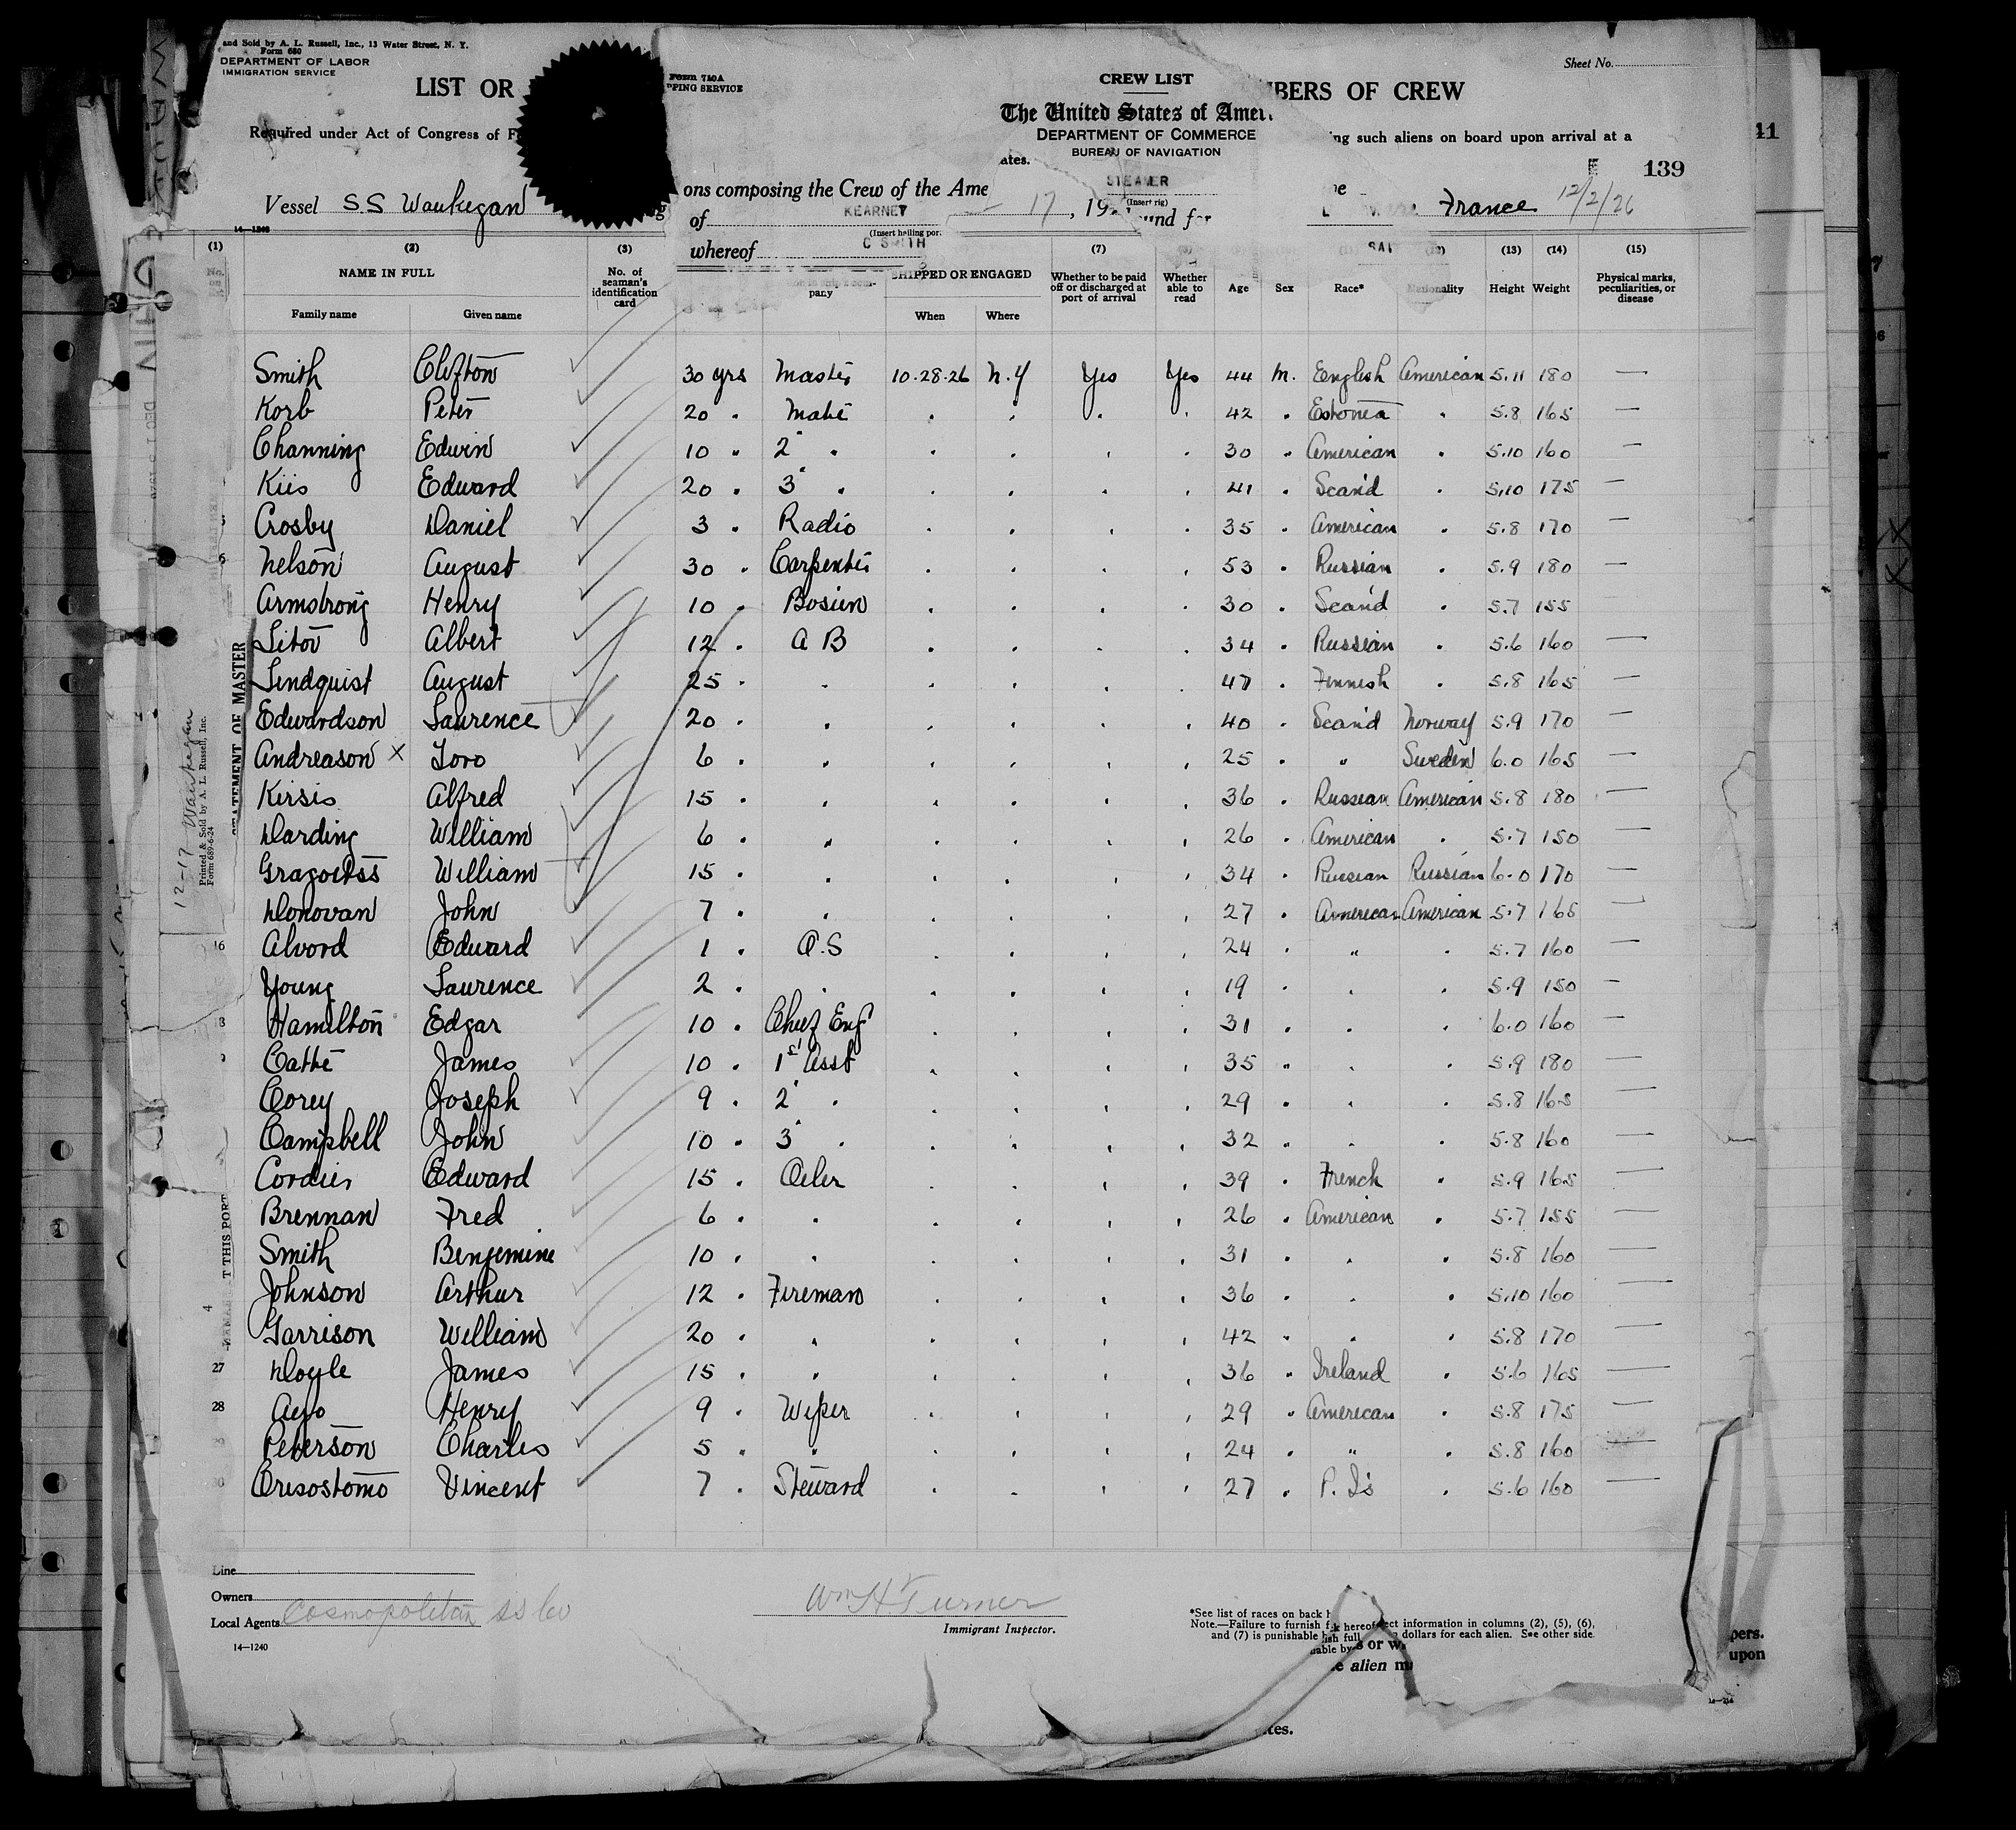 and Sold by A. L. Russell, Inc., 13 Water Street, N. Y.
Form 680
DEPARTMENT OF LABOR
IMMIGRATION SERVICE
Sheet No.
LIST OR
Form 710A
PPING SERVICE
CREW LIST
MBERS OF CREW
The United States of Amer
Required under Act of Congress of F
DEPARTMENT OF COMMERCE
ing such aliens on board upon arrival at a
BUREAU OF NAVIGATION
ates.
41
E 139
STEAMER
(Insert rig)
ons composing the Crew of the Ame
Vessel S.S Waukegan
17, 19
und for
France 12/2/26
of KEARNEY
14-1240
(Insert hailing por
whereof C SMITH
(1) (2) (3) (7) (12) (13) (14) (15)
NAME IN FULL
No. of seaman's identification card
pany
SHIPPED OR ENGAGED
Whether to be paid off or discharged at port of arrival
Whether able to read
Age Sex Race* Nationality Height Weight
Physical marks, peculiarities, or disease
Family name Given name When Where
Smith Clifton 30 yrs Master 10.28.26 N.Y Yes Yes 44 M. English American 5.11 180 —
Korb Peter 20 " Mate " " " " 42 " Estonia " 5.8 165 —
Channing Edwin 10 " 2" " " " " " 30 " American " 5.10 160 —
Kiis Edward 20 " 3" " " " " " 41 " Scand " 5.10 175 —
Crosby Daniel 3 " Radio " " " " 35 " American " 5.8 170 —
6 Nelson August 30 " Carpenter " " " " 53 " Russian " 5.9 180 —
Armstrong Henry 10 " Bosun " " " " 30 " Scand " 5.7 155 —
Sitov Albert 12 " A B " " " " 34 " Russian " 5.6 160 —
Lindquist August 25 " " " " " " 47 " Finnish " 5.8 165 —
Edwardson Laurence 20 " " " " " " 40 " Scand Norway 5.9 170 —
Andreason X Toro 6 " " " " " " 25 " " Sweden 6.0 165 —
Kirsis Alfred 15 " " " " " " 36 " Russian American 5.8 180 —
Harding William 6 " " " " " " 26 " American " 5.7 150 —
William 15 " " " " " " 34 " Russian Russian 6.0 170 —
Donovan John 7 " " " " " " 27 " American American 5.7 165 —
16 Alvord Edward 1 " O.S " " " " 24 " " " 5.7 160 —
Young Laurence 2 " " " " " " 19 " " " 5.9 150 —
Hamilton Edgar 10 " Chief Eng " " " " 31 " " " 6.0 160 —
James 10 " 1st Asst " " " " 35 " " " 5.9 180 —
Corey Joseph 9 " 2" " " " " " 29 " " " 5.8 165 —
Campbell John 10 " 3" " " " " " 32 " " " 5.8 160 —
Cordier Edward 15 " Oiler " " " " 39 " French " 5.9 165 —
Brennan Fred 6 " " " " " " 26 " American " 5.7 155 —
Smith Benjemine 10 " " " " " " 31 " " " 5.8 160 —
Johnson Arthur 12 " Fireman " " " " 36 " " " 5.10 160 —
Garrison William 20 " " " " " " 42 " " " 5.8 170 —
27 Doyle James 15 " " " " " " 36 " Ireland " 5.6 165 —
28 Henry 9 " Wiper " " " " 29 " American " 5.8 175 —
Peterson Charles 5 " " " " " " 24 " " " 5.8 160 —
Crisostomo Vincent 7 " Steward " " " " 27 " P. Is " 5.6 160 —
STATEMENT OF MASTER
12-17 Waukegan
Printed & Sold by A. L. Russell, Inc.
Form 689-6-24
T THIS PORT
Line
Owners
Local Agents Cosmopolitan SS Co
14—1240
Wm H Turner
Immigrant Inspector.
*See list of races on back h
Note.—Failure to furnish
hereof
ect information in columns (2), (5), (6),
and (7) is punishable
dollars for each alien. See other side.
ish full
able by
s or w
e alien m
pers.
upon
tes.